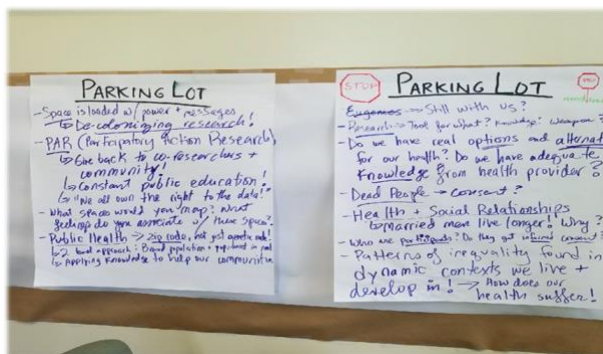 PARKING LOT
- Space is loaded w/ power + messages
↳ De-colonizing research!
- PAR (Participatory Action Research)
↳ Give back to co-researchers +
community!
↳ Constant public education!
↳ "We all own the right to the data!"
- What spaces would you map? What
feelings do you associate w/ these space?
- Public Health → zip code, not just genetic code!
↳ 2 level approach: Broad population +
↳ Applying knowledge to help our communities
STOP PARKING LOT
Eugenics → Still with us?
- Research → Tool for what? Knowledge? Weapon?
- Do we have real options and alternat
for our health? Do we have adequate
Knowledge from health provider?
- Dead People → consent?
- Health + Social Relationships
↳ married men live longer! Why?
- Who are participants? Do they get informed consent?
- Patterns of inequality found in
dynamic contexts we live +
develop in! → How does our
health suffer!